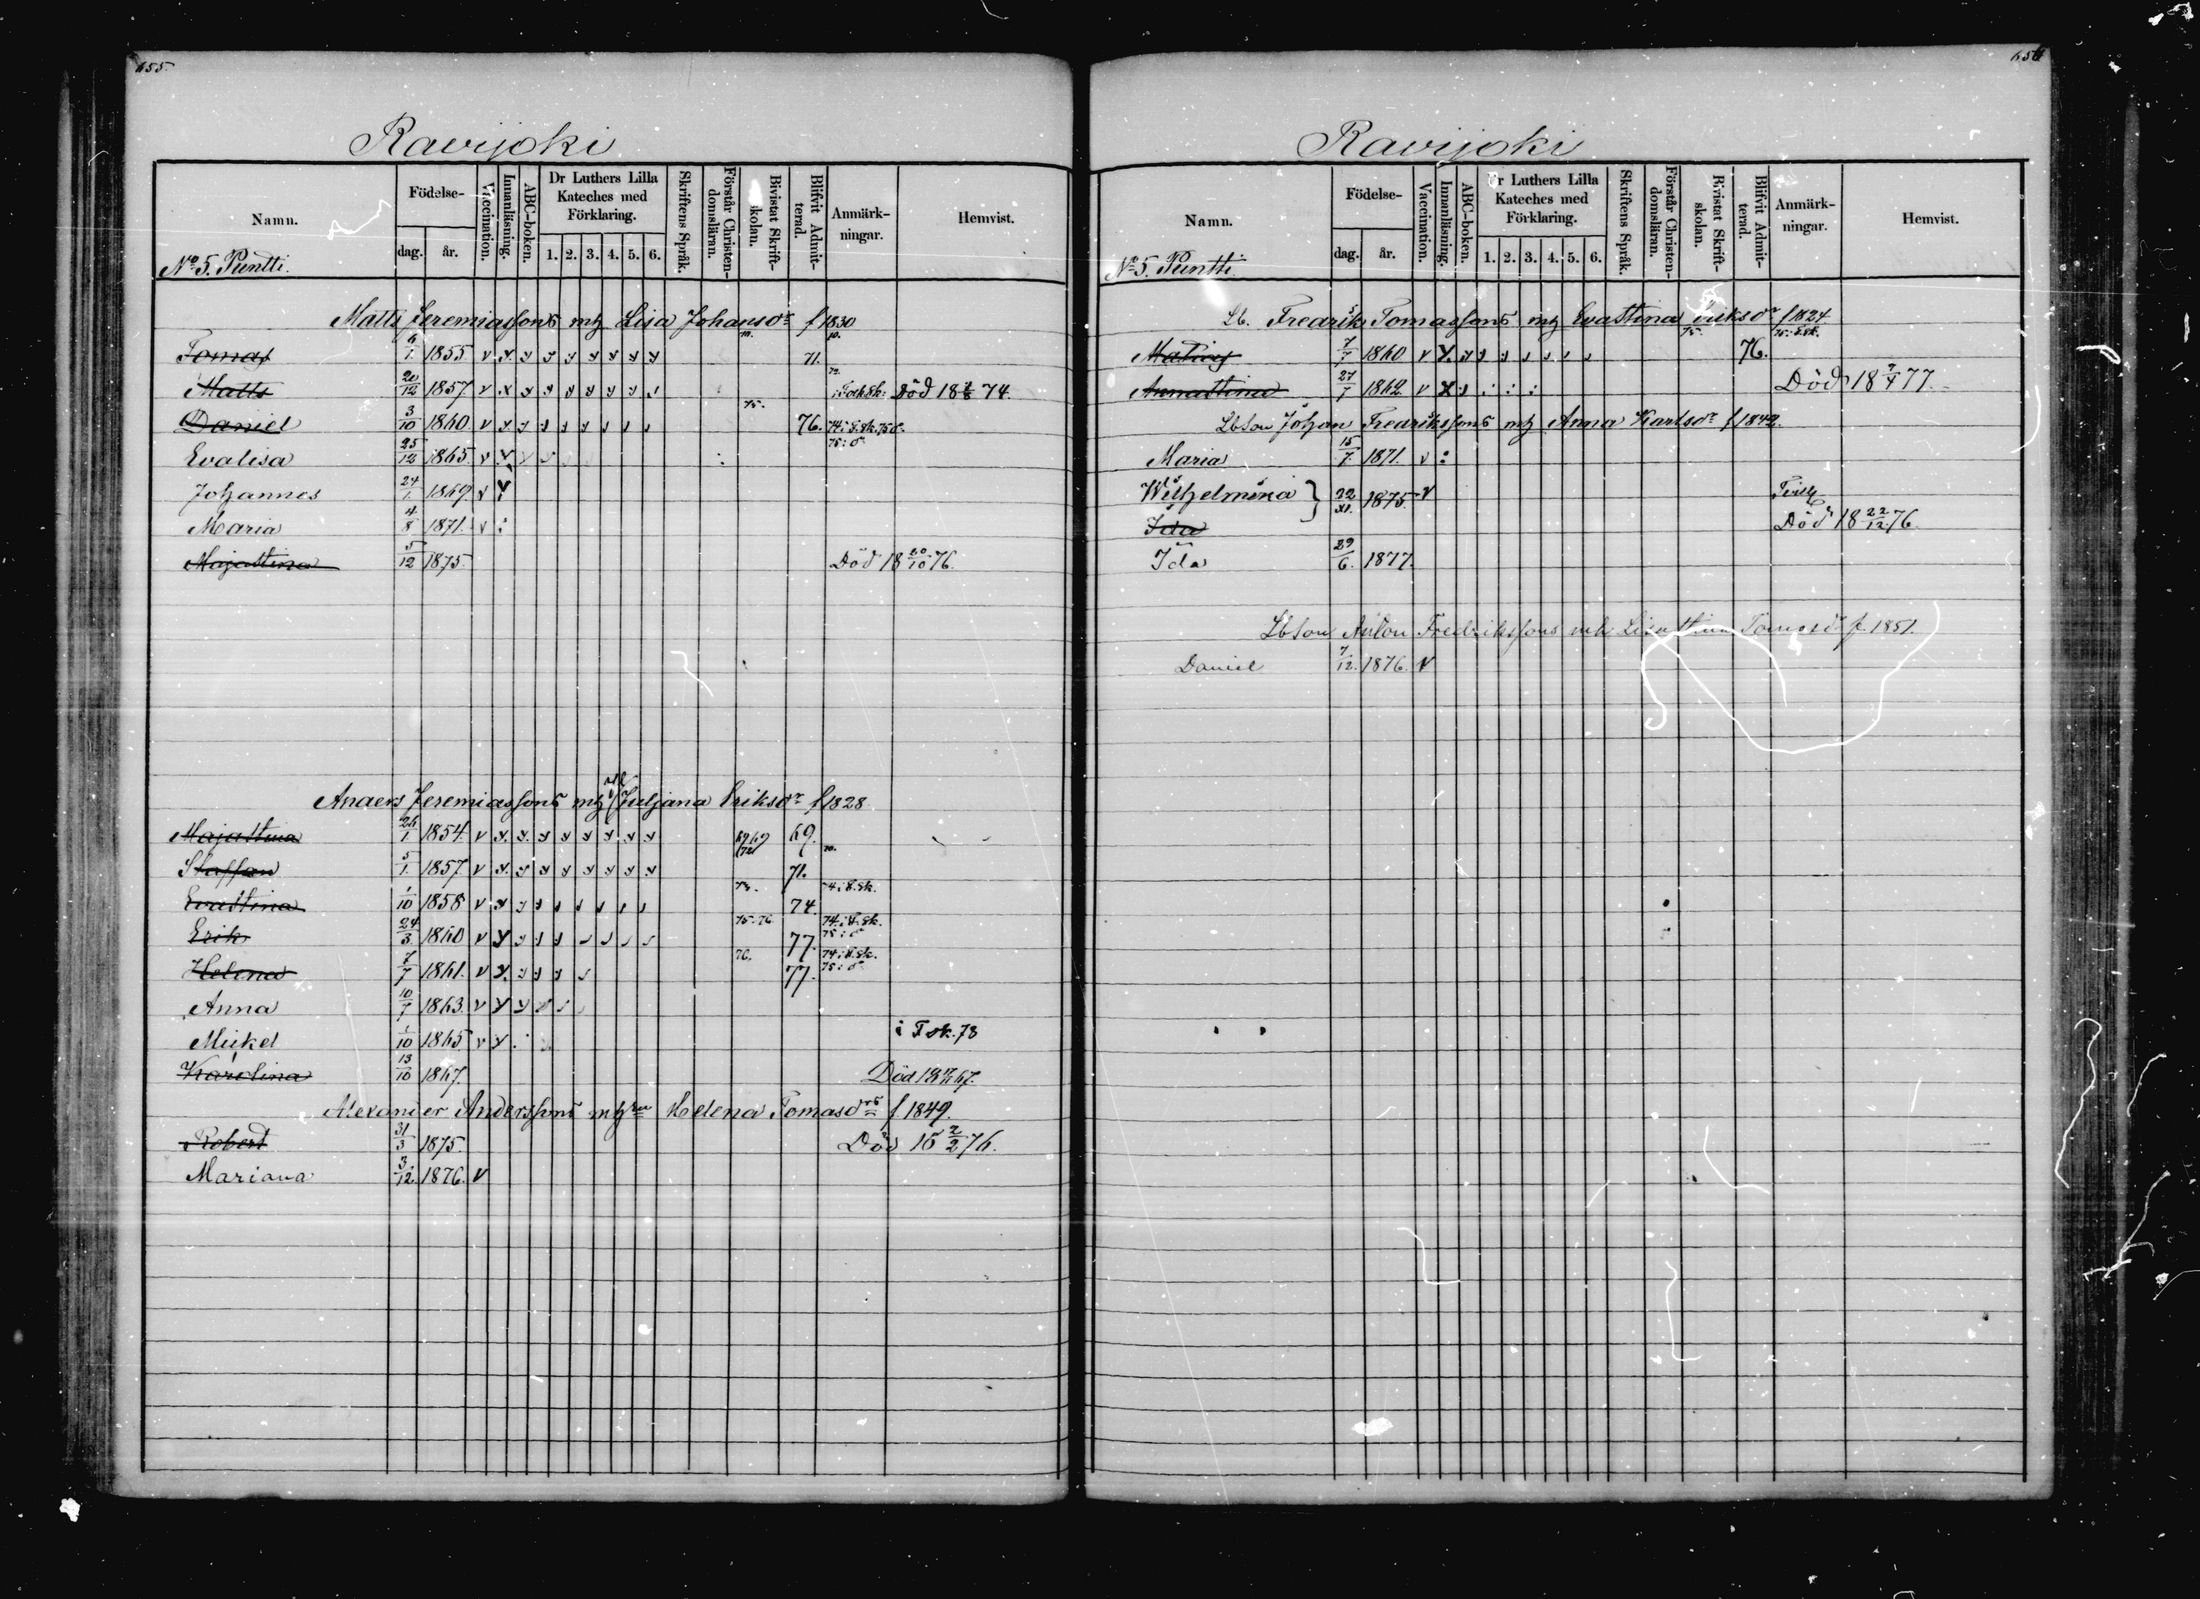 655.
Ravijoki
Namn.
Födelse-
dag.
år.
Vaccination.
Innanläsning.
ABC-boken.
Dr Luthers Lilla
Kateches med
Förklaring.
1. 2. 3. 4. 5. 6.
Skriftens Språk.
Förstår Christen-
domsläran.
Bivistat Skrift-
skolan.
Blifvit Admit-
terad.
Anmärk-
ningar.
Hemvist.
No 5. Puntti.
Matts Jeremiassons m h Lisa Johansdr f 1830
Tomas 6/1 1855 v y y y y y y y y 71.
Matts 20/12 1857. v x y y y y y y Död 18 74.
Daniel 3/10 1860 v y y 75. 76. 74: S.sk. 75 0.
Evalisa 25/12 1865. v 75: 0
Johannes 24/1. 1869 v
Maria 4/8 1871. v :
Majastina 5/12 1875. Död 18 20/10 76.
Anders Jeremiassons m h Juljana Eriksdr f 1828
Majastina 26/1 1854. v y. y. y y y y y y 69.
Staffan 5/1. 1857. v y. y y y y y y y 71.
Evastina 1/10 1858 v y 74.
Erik 24/3 1860 v y 75. 76. 77. 74: S.sk.
Helena 7/7 1861. v y. 76. 77. 74: S.sk.
Anna 10/7 1863. v y y
Mickel 1/10 1865 v y. i F sk. 78
Karolina 13/10 1867. Död 18 67.
Alexander Anderssons m hru Helena Tomasdrs f. 1849.
Robert 31/3 1875. Död 18 2/2 76.
Mariana 3/12. 1876. v
656
Ravijoki
Namn.
Födelse-
dag.
år.
Vaccination.
Innanläsning.
ABC-boken.
Dr Luthers Lilla
Kateches med
Förklaring.
1. 2. 3. 4. 5. 6.
Skriftens Språk.
Förstår Christen-
domsläran.
Bivistat Skrift-
skolan.
Blifvit Admit-
terad.
Anmärk-
ningar.
Hemvist.
No 5. Puntti.
Lb. Fredrik Tomassons m h Evastina Eriksdr f 1824
7/7 1860 v y. 75. 76.
Annastina 27/7 1862. v x Död 18 7/4 77.
Lbson Johan Fredrikssons m h Anna Karlsdr f 1842.
Maria 15/7 1871. v :
Wilhelmina } 22/XI. 1875. v
Ida Död 18 22/12 76.
Ida 29/6. 1877.
Lbson Anton Fredrikssons m h Lisastina Tomasdr f. 1851.
Daniel 7/12. 1876. v